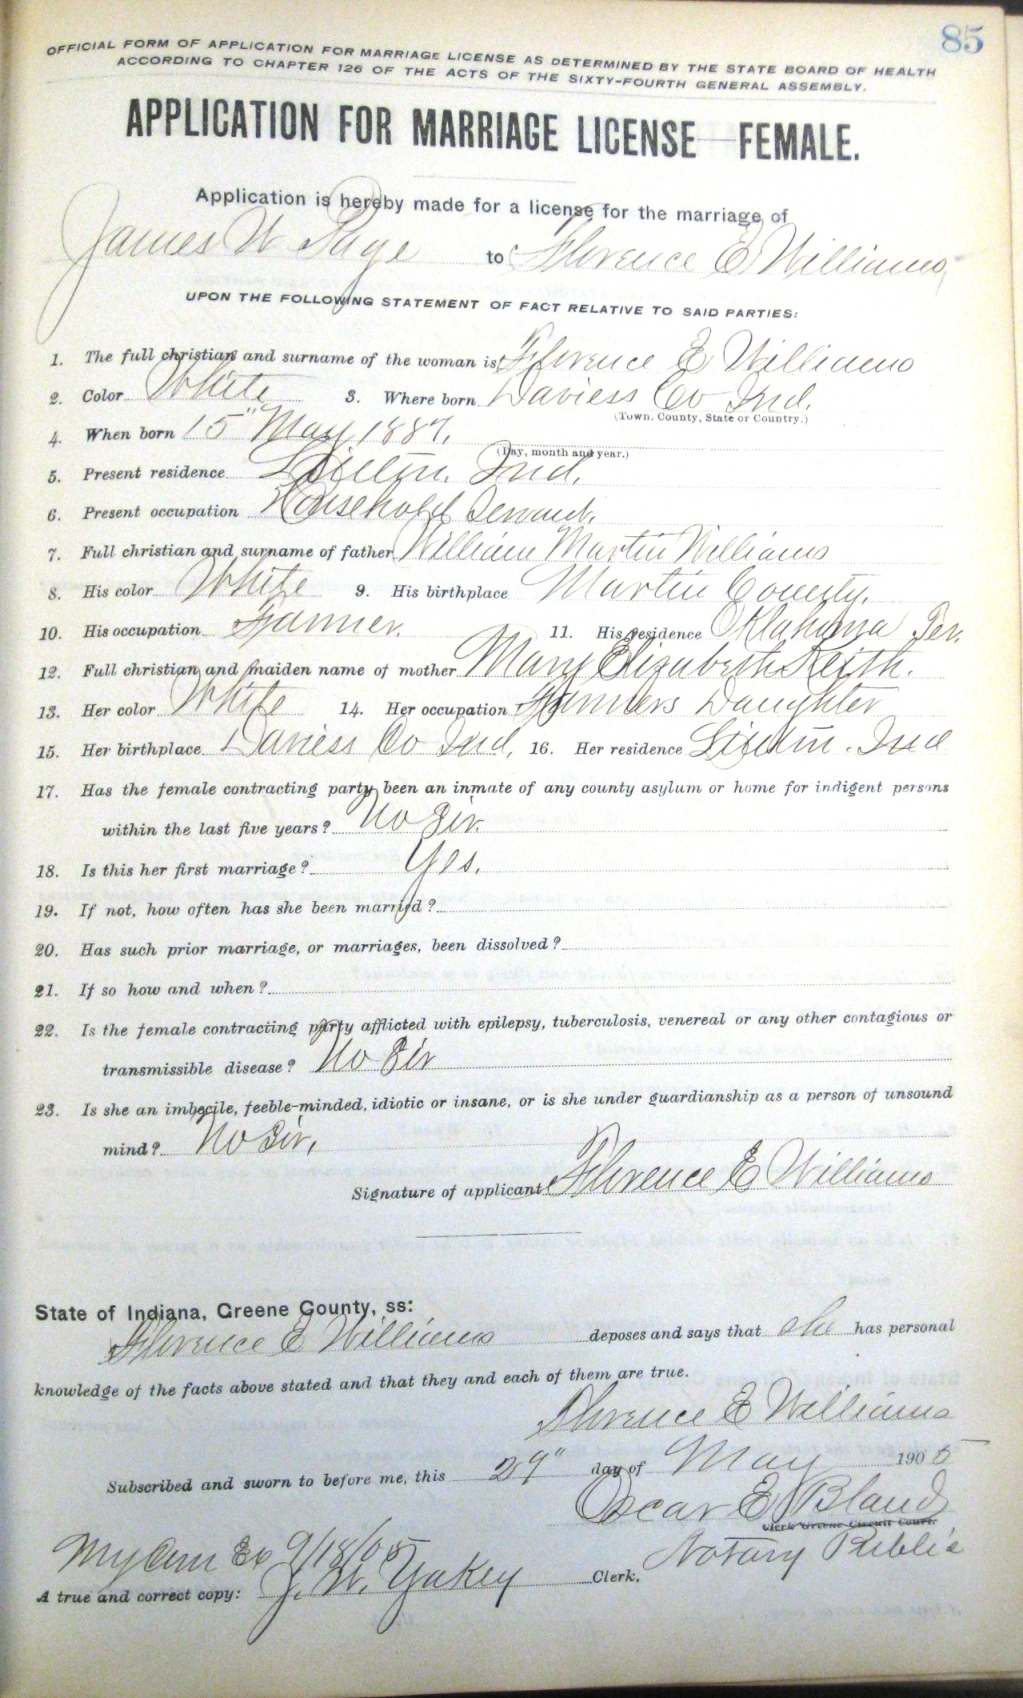 85
OFFICIAL FORM OF APPLICATION FOR MARRIAGE LICENSE AS DETERMINED BY THE STATE BOARD OF HEALTH
ACCORDING TO CHAPTER 126 OF THE ACTS OF THE SIXTY-FOURTH GENERAL ASSEMBLY.
APPLICATION FOR MARRIAGE LICENSE—FEMALE.
Application is hereby made for a license for the marriage of
James W Page to Florence E Williams
UPON THE FOLLOWING STATEMENT OF FACT RELATIVE TO SAID PARTIES:
1. The full christian and surname of the woman is Florence E Williams
2. Color White 3. Where born Daviess Co Ind.
(Town. County, State or Country.)
4. When born 15" May 1887.
(Day, month and year.)
5. Present residence Linton. Ind.
6. Present occupation Household Servant.
7. Full christian and surname of father William Martin Williams
8. His color White 9. His birthplace Martin County.
10. His occupation Farmer. 11. His residence Oklahoma Ter.
12. Full christian and maiden name of mother Mary Elizabeth Keith.
13. Her color White 14. Her occupation Farmers Daughter
15. Her birthplace Daviess Co Ind. 16. Her residence Linton. Ind
17. Has the female contracting party been an inmate of any county asylum or home for indigent persons
within the last five years? No Sir.
18. Is this her first marriage? Yes.
19. If not, how often has she been married?
20. Has such prior marriage, or marriages, been dissolved?
21. If so how and when?
22. Is the female contracting party afflicted with epilepsy, tuberculosis, venereal or any other contagious or
transmissible disease? No Sir
23. Is she an imbecile, feeble-minded, idiotic or insane, or is she under guardianship as a person of unsound
mind? No Sir.
Signature of applicant Florence E Williams
State of Indiana, Greene County, ss:
Florence E Williams deposes and says that she has personal
knowledge of the facts above stated and that they and each of them are true.
Florence E Williams
Subscribed and sworn to before me, this 29" day of May 1905
Oscar E Bland
Clerk Greene Circuit Court.
My Com Ex 9/18/08 Notary Public
A true and correct copy: J. W. Yakey Clerk.